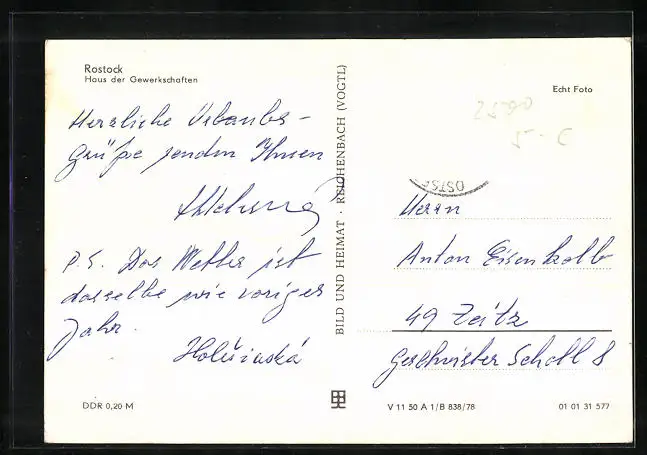 Rostock
Haus der Gewerkschaften
Herzliche Urlaubs-
grüße senden Ihnen
P.S. Das Wetter ist
dasselbe wie voriges
Jahr.
Holušinská
DDR 0,20 M
BILD UND HEIMAT · REICHENBACH (VOGTL)
Echt Foto
OSTSE
Herrn
Anton Eisenkolb
49 Zeitz
Geschwister Scholl 8
V 11 50 A 1/B 838/78
01 01 31 577